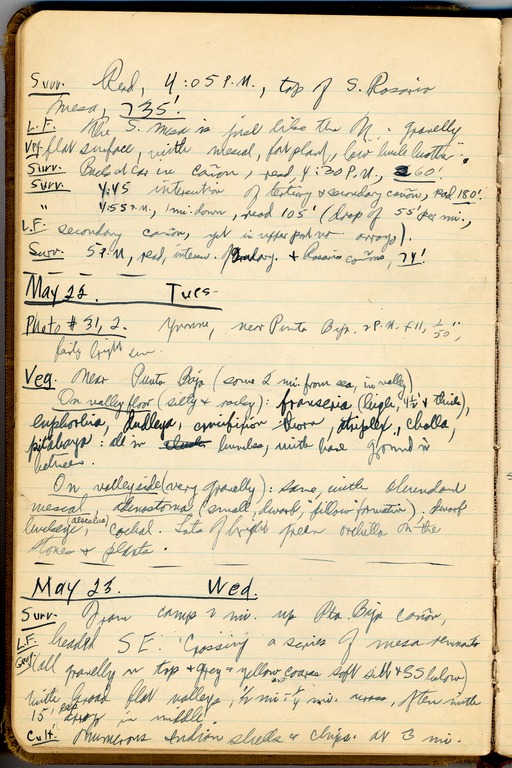 Surr. Read, 4:05 P.M., top of S. Rosario
mesa, 735'.
L.F. The S. mesa is just like the N. - gravelly
Veg. flat surface, with mescal, fat plant, low
Surr. Back at car in cañon, read, 4:30 P.M., 60'.
Surr. 4:45 intersection of tertiary & secondary cañon, read 180'.
" 4:55 P.M., 1 mi. down, read 105' (drop of 55' per mi.,
L.F. secondary cañon, yet in upper part no arroyo).
Surr. 5 P.M., read, intersec. & Rosario cañons, 74'.
May 22. Tues.
Photo # 31, 2. Yvonne, near Punta Baja. 2 P.M. f 11, 1/50",
fairly bright sun.
Veg. Near Punta Baja (some 2 mi. from sea, in valley)
On valley floor (silty & rocky): franseria (high, 4 1/2' & thick),
euphorbia, dudleya, crucifixion thorn, atriplex, cholla,
pitahaya: all in bunches, with bare ground in
between.
On valley side (very gravelly): same, with abundant
mescal, (small, dwarf, "pillow" formation), dwarf
buckeye (aesculus), cochal. Lots of bright green orchilla on the
stones & plants.
May 23. Wed.
Surr. From camp 2 mi. up Pta. Baja cañon,
L.F. headed SE. Crossing a series of mesa remnants
Geol. (all gravelly on top & grey & yellow coarse soft silt & SS below)
with broad flat valleys, 1/2 mi - 1/4 mi. across, often with
15' arroyo in middle.
Cult. Numerous Indian shells & chips. At 3 mi.